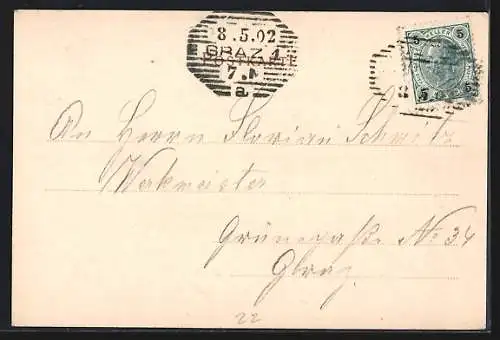 8.5.02
GRAZ 1
POSTKARTE
7.
a
HELLER
5 5
5 5
8
An Herrn Florian Schmelz
Werkmeister
Grünegaße No 34
Graz
22